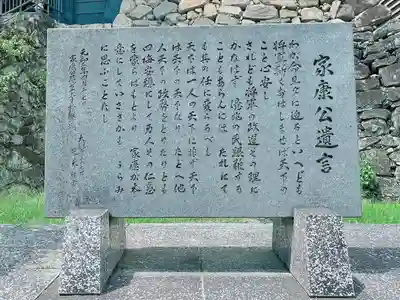 家康公遺言
わが命旦夕に迫るといへども
将軍斯くおはしませば天下の
こと心安し
されども将軍の政道その理に
かなはず億兆の民艱難する
こともあらんには たれにても
其の任に変らるべし
天下は一人の天下に非ず天下
は天下の天下なり たとへ他
人天下の政務をとりたりとも
四海安穏にして万人その仁恵
を蒙らばもとより 家康が本
意にしていささかも うらみ
に思ふことなし